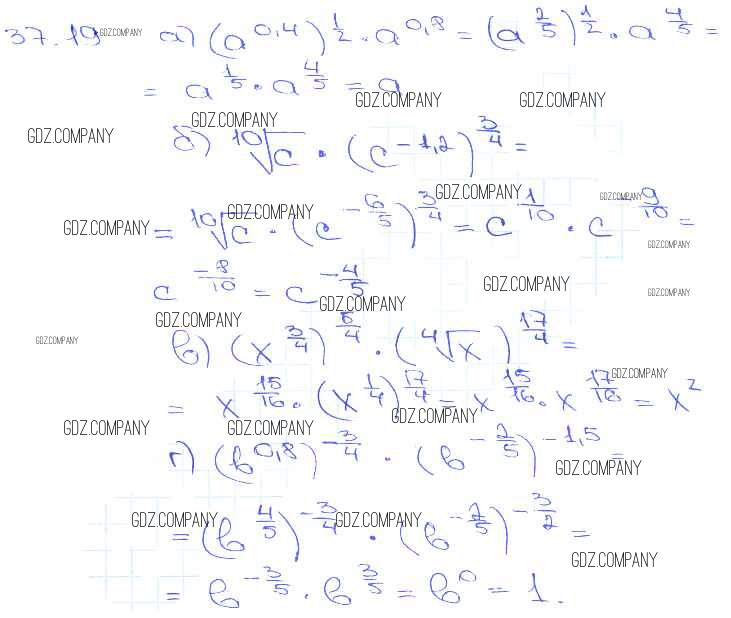 37.19 GDZ.COMPANY а) (a^0,4)^(1/2) · a^0,8 = (a^(2/5))^(1/2) · a^(4/5) =
= a^(1/5) · a^(4/5) = a
GDZ.COMPANY GDZ.COMPANY
GDZ.COMPANY GDZ.COMPANY
б) ¹⁰√c · (c^-1,2)^(3/4) =
GDZ.COMPANY GDZ.COMPANY
GDZ.COMPANY GDZ.COMPANY
= ¹⁰√c · (c^(-6/5))^(3/4) = c^(1/10) · c^(-9/10) =
GDZ.COMPANY
c^(-8/10) = c^(-4/5)
GDZ.COMPANY GDZ.COMPANY
GDZ.COMPANY
GDZ.COMPANY
GDZ.COMPANY
в) (x^(3/4))^(5/4) · (⁴√x)^(17/4) =
GDZ.COMPANY
= x^(15/16) · (x^(1/4))^(17/4) = x^(15/16) · x^(17/16) = x²
GDZ.COMPANY
GDZ.COMPANY GDZ.COMPANY
г) (b^0,8)^(-3/4) · (b^(-2/5))^-1,5 =
GDZ.COMPANY
= (b^(4/5))^(-3/4) · (b^(-2/5))^(-3/2) =
GDZ.COMPANY GDZ.COMPANY
GDZ.COMPANY
= b^(-3/5) · b^(3/5) = b^0 = 1.